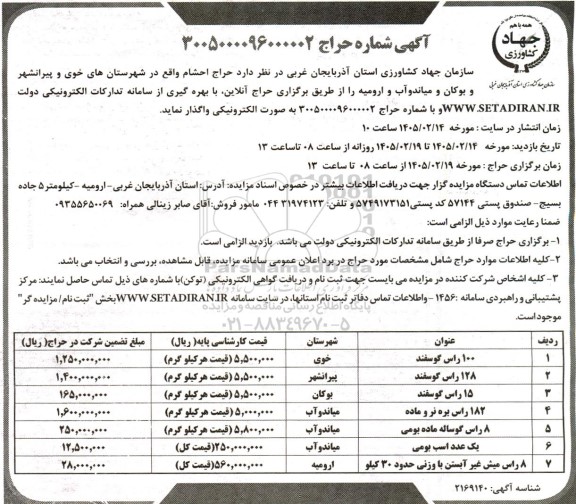 همه با هم
جهاد
کشاورزی
سازمان جهاد کشاورزی استان آذربایجان غربی
آگهی شماره حراج ۳۰۰۵۰۰۰۰۹۶۰۰۰۰۰۲
سازمان جهاد کشاورزی استان آذربایجان غربی در نظر دارد حراج احشام واقع در شهرستان های خوی و پیرانشهر
و بوکان و میاندوآب و ارومیه را از طریق برگزاری حراج آنلاین، با بهره گیری از سامانه تدارکات الکترونیکی دولت
WWW.SETADIRAN.IR و با شماره حراج ۳۰۰۵۰۰۰۰۹۶۰۰۰۰۰۲ به صورت الکترونیکی واگذار نماید.
زمان انتشار در سایت : مورخه ۱۴۰۵/۰۲/۱۴ ساعت ۱۰
تاریخ بازدید: مورخه ۱۴۰۵/۰۲/۱۴ تا ۱۴۰۵/۰۲/۱۹ روزانه از ساعت ۰۸ تاساعت ۱۳
زمان برگزاری حراج : مورخه ۱۴۰۵/۰۲/۱۹ از ساعت ۰۸ تا ساعت ۱۳
اطلاعات تماس دستگاه مزایده گزار جهت دریافت اطلاعات بیشتر در خصوص اسناد مزایده: آدرس: استان آذربایجان غربی-ارومیه -کیلومتر۵ جاده
بسیج- صندوق پستی ۵۷۱۴۴ کد پستی ۵۷۴۹۱۷۳۱۵۱ و تلفن: ۳۱۹۷۴۱۲۳ ۰۴۴ مامور فروش: آقای صابر زینالی همراه: ۰۹۳۵۵۶۵۰۰۶۹
ضمنا رعایت موارد ذیل الزامی است:
۱- برگزاری حراج صرفا از طریق سامانه تدارکات الکترونیکی دولت می باشد. بازدید الزامی است.
۲-کلیه اطلاعات موارد حراج شامل مشخصات مورد حراج در برد اعلان عمومی سامانه مزایده، قابل مشاهده، بررسی و انتخاب می باشد.
۳-کلیه اشخاص شرکت کننده در مزایده می بایست جهت ثبت نام و دریافت گواهی الکترونیکی (توکن) با شماره های ذیل تماس حاصل نمایند: مرکز
پشتیبانی و راهبردی سامانه :۱۴۵۶ -واطلاعات تماس دفاتر ثبت نام استانها، در سایت سامانه WWW.SETADIRAN.IR بخش "ثبت نام / مزایده گر"
موجود است.
ParsNamadData
پایگاه اطلاع رسانی مناقصه و مزایده
۰۲۱-۸۸۳۴۹۶۷۰-۵
ردیف عنوان شهرستان قیمت کارشناسی پایه( ریال) مبلغ تضمین شرکت در حراج( ریال)
۱ ۱۰۰ راس گوسفند خوی ۵,۵۰۰,۰۰۰ (قیمت هر کیلو گرم) ۱,۲۵۰,۰۰۰,۰۰۰
۲ ۱۲۸ راس گوسفند پیرانشهر ۵,۵۰۰,۰۰۰ (قیمت هر کیلو گرم) ۱,۴۰۰,۰۰۰,۰۰۰
۳ ۱۵ راس گوسفند بوکان ۵,۵۰۰,۰۰۰ (قیمت هر کیلو گرم) ۱۶۵,۰۰۰,۰۰۰
۴ ۱۸۲ راس بره نر و ماده میاندوآب ۵,۰۰۰,۰۰۰ (قیمت هر کیلو گرم) ۱,۶۰۰,۰۰۰,۰۰۰
۵ ۸ راس گوساله ماده بومی میاندوآب ۵,۸۰۰,۰۰۰ (قیمت هر کیلو گرم) ۲۵۰,۰۰۰,۰۰۰
۶ یک عدد اسب بومی میاندوآب ۲۵۰,۰۰۰,۰۰۰(قیمت کل) ۱۲,۵۰۰,۰۰۰
۷ ۸ راس میش غیر آبستن با وزنی حدود ۳۰ کیلو ارومیه ۵۶۰,۰۰۰,۰۰۰(قیمت کل) ۲۸,۰۰۰,۰۰۰
شناسه آگهی: ۲۱۶۹۱۴۰